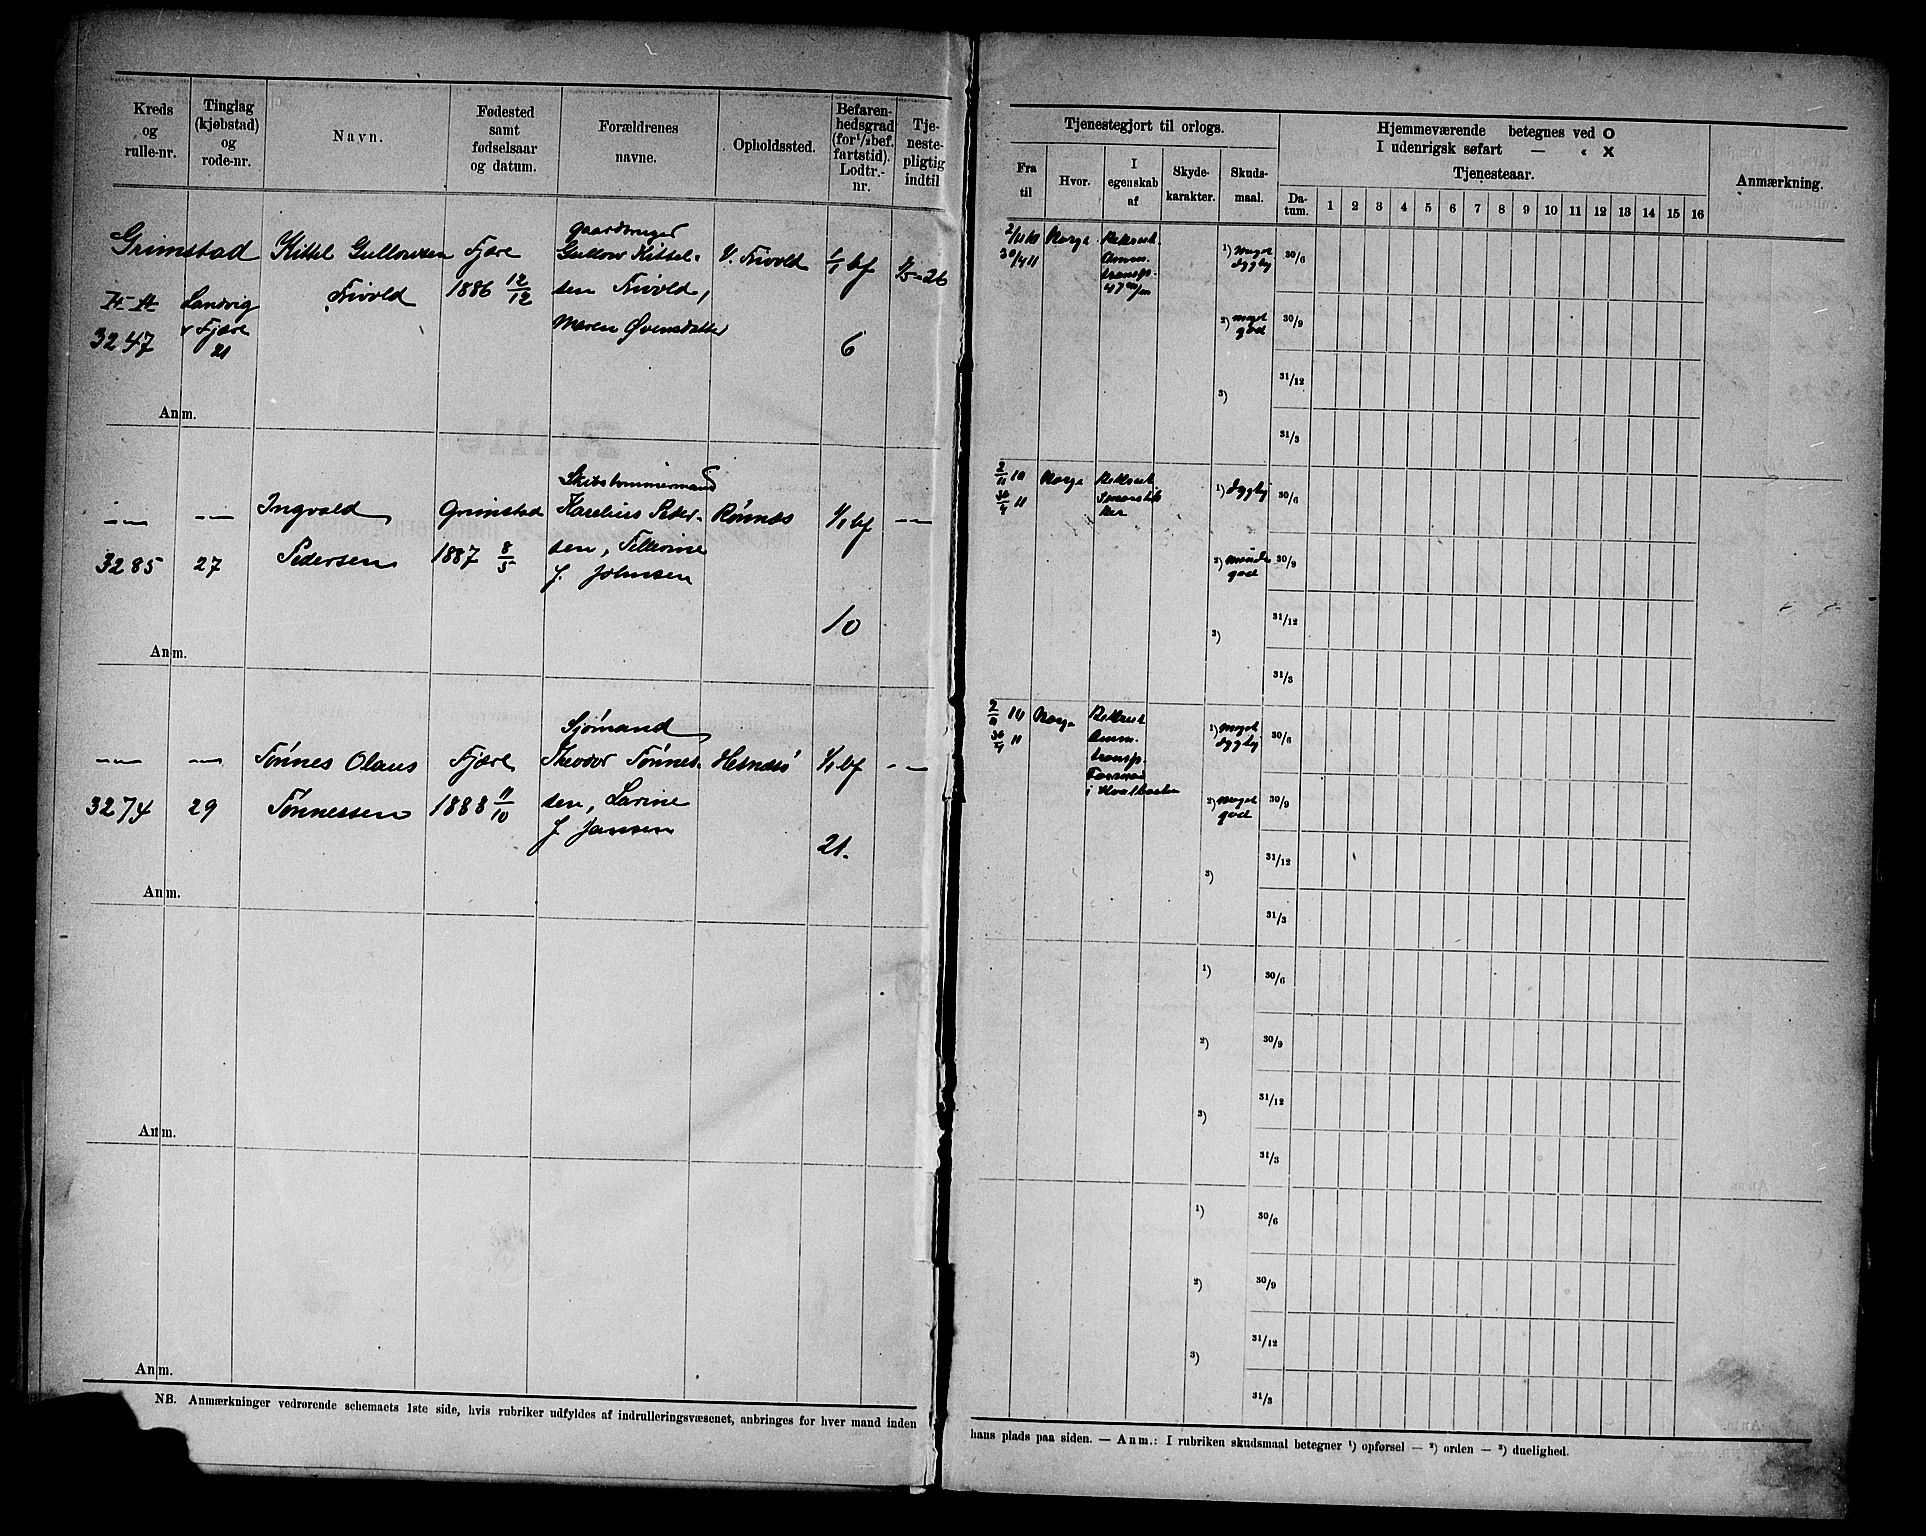 Kreds og rulle-nr.
Tinglag (kjøbstad) og rode-nr.
Navn.
Fødested samt fødselsaar og datum.
Forældrenes navne.
Opholdssted.
Befaren-hedsgrad (for ½ bef. fartstid). Lodtr.-nr.
Tje-neste-pligtig indtil
Tjenestegjort til orlogs.
Fra til
Hvor.
I egenskab af
Skyde-karakter.
Skuds-maal.
Hjemmeværende betegnes ved O
I udenrigsk søfart — „ X
Tjenesteaar.
Da-tum. 1 2 3 4 5 6 7 8 9 10 11 12 13 14 15 16
Anmærkning.
Grimstad
3247
Landvig
& Fjære
21
Kittel Gullowsen
Frivold
Fjære
1886 12/12
Gaardbruger
Gullow Kittel-
sen Frivold,
Maren Øvensdatter
V. Frivold
1/1 bf
6
2/11 10
30/4 11
Norge
Rekrut
Amm.
transp.
47 m/m
1) meget
dygtig
2) meget
god
3)
30/6
30/9
31/12
31/3
Anm.
3285
27
Ingvald
Pedersen
Grimstad
1887 8/5
Skibstømmermand
Karelius Peder-
sen,
J. Johnsen
Rønnes
1/1 bf
10
2/11 10
30/4 11
Norge
Rekrut
1) dygtig
2)
god
3)
30/6
30/9
31/12
31/3
Anm.
3274
29
Tønnes Olaus
Tønnessen
Fjære
1888 11/10
Sjømand
Theodor Tønnes-
sen, Larine
J. Jansen
Hesnesø
1/1 bf
21.
2/11 10
30/4 11
Norge
Rekrut
Amm.
transp.
1) meget
dygtig
2) meget
god
3)
30/6
30/9
31/12
31/3
Anm.
1)
2)
3)
30/6
30/9
31/12
31/3
Anm.
1)
2)
3)
30/6
30/9
31/12
31/3
Anm.
NB. Anmærkninger vedrørende schemaets 1ste side, hvis rubriker udfyldes af indrulleringsvæsenet, anbringes for hver mand inden
hans plads paa siden. — Anm.: I rubriken skudsmaal betegner ¹) opførsel — ²) orden — ³) duelighed.